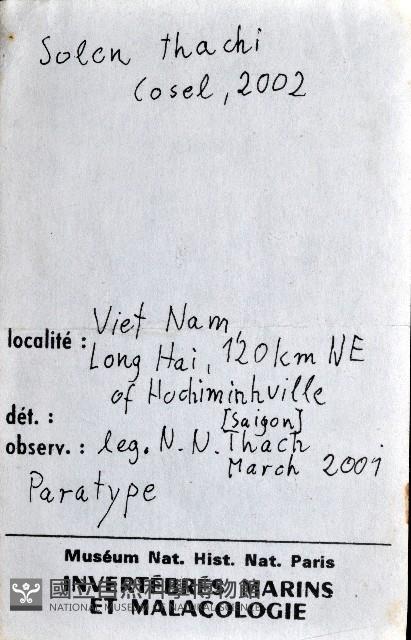 Solen thachi
Cosel, 2002
localité : Viet Nam,
Long Hai, 120km NE
of Hochiminhville
dét. : [Saigon]
observ. : leg. N. N. Thach
March 2001
Paratype
Muséum Nat. Hist. Nat. Paris
INVERTÉBRÉS MARINS
國立自然科學博物館
NATIONAL MUSEUM OF NATURAL SCIENCE
ET MALACOLOGIE